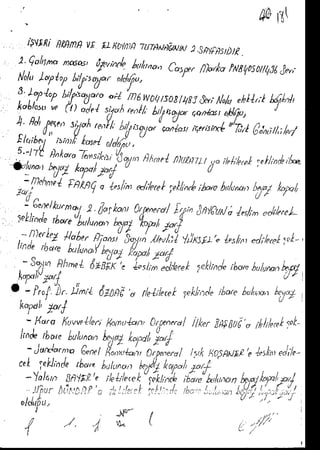 İŞYERİ ARAMA VE EL KOYMA TUTANAĞININ 2. SAYFASIDIR.
2. Çalışma masası üzerinde bulunan Casper Marka Seri
Nolu Laptop bilgisayar olduğu,
3. Laptop bilgisayara ait Seri Nolu elektrik bağlantı
kablosu ve (1) adet siyah renkli bilgisayar çantası olduğu,
4. Adı geçen siyah renkli bilgisayar çantası içerisinde "Türk Gönüllüleri
isimli kaset olduğu,
5. Ankara Temsilcisi Sayın Ahmet ya iletilecek şeklinde ibare
bulunan beyaz kapalı zarf
- Mehmet FARAÇ a teslim edilecek şeklinde ibare bulunan beyaz kapalı
zarf
- Genelkurmay 2. Başkanı Orgeneral Ergin SAYGUN'a teslim edilecek
şeklinde ibare bulunan beyaz kapalı zarf
- Merkez Haber Ajansı Sayın Mevlüt YÜKSEL'e teslim edilecek şek-
linde ibare bulunan beyaz kapalı zarf
- Sayın Ahmet ÖZBEK'e teslim edilecek şeklinde ibare bulunan beyaz
kapalı zarf
- Prof. Dr. Ümit ÖZDAĞ'a iletilecek şeklinde ibare bulunan beyaz
kapalı zarf
- Kara Kuvvetleri Komutanı Orgeneral İlker BAŞBUĞ'a iletilecek şek-
linde ibare bulunan beyaz kapalı zarf
- Jandarma Genel Komutanı Orgeneral Işık KOŞANER'e teslim edile-
cek şeklinde ibare bulunan beyaz kapalı zarf
- Yalçın BAYER'e iletilecek şeklinde ibare bulunan beyaz kapalı zarf
- Uğur DÜNDAR'a iletilecek şeklinde ibare bulunan beyaz kapalı zarf
olduğu,